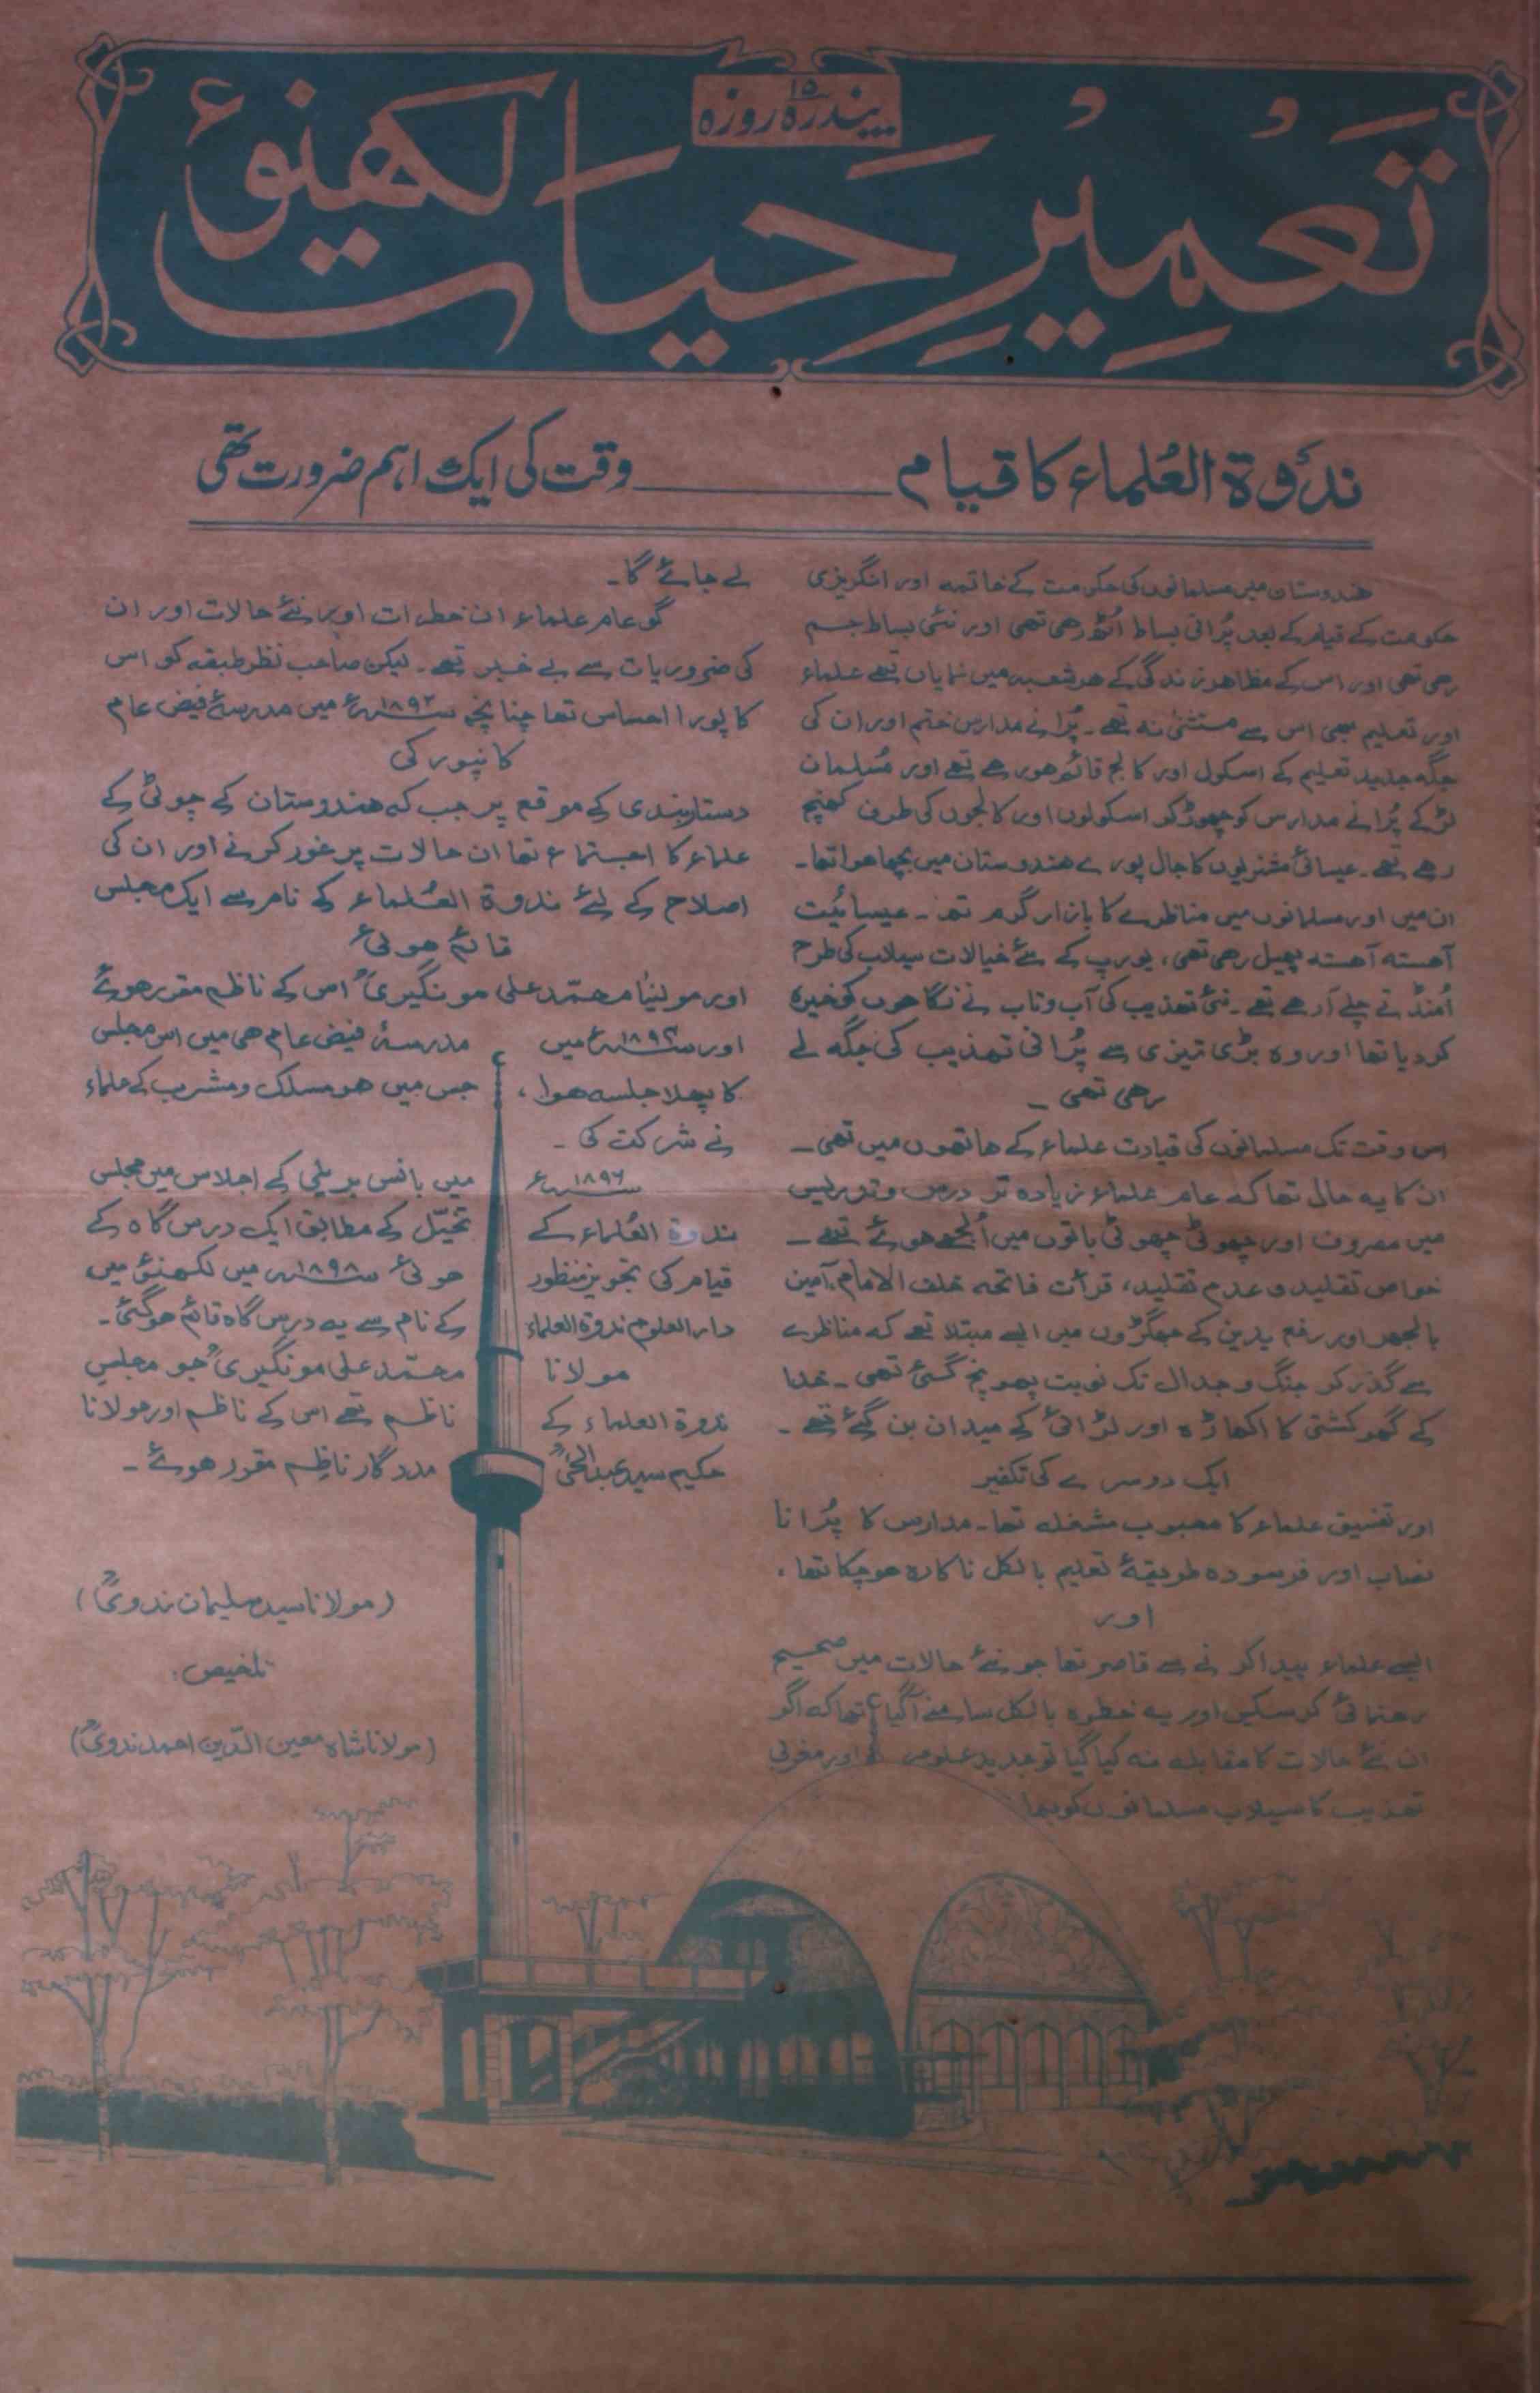 پندرہ ۱۵ روزہ
تَعْمِیْرِ حَیَات لکھنؤ
ندوۃ العُلماء کا قیام ـــــ وقت کی ایک اہم ضرورت تھی
ھندوستان میں مسلمانوں کی حکومت کے خاتمہ اور انگریزی
حکومت کے قیام کے بعد پُرانی بساط اُٹھ رھی تھی اور نئی بساط جسم
رھی تھی اور اس کے مظاھر زندگی کے ھر شعبہ میں نمایاں تھے علماء
اور تعلیم بھی اس سے مستثنیٰ نہ تھے۔ پُرانے مدارس ختم اور ان کی
جگہ جدید تعلیم کے اسکول اور کالج قائم ھو رھے تھے اور مُسلمان
لڑکے پُرانے مدارس کو چھوڑ کر اسکولوں اور کالجوں کی طرف کھنچ
رھے تھے۔ عیسائی مشنریوں کا جال پورے ھندوستان میں بچھا ھوا تھا۔
ان میں اور مسلمانوں میں مناظرے کا بازار گرم تھا۔ عیسائیت
آھستہ آھستہ پھیل رھی تھی، یورپ کے نئے خیالات سیلاب کی طرح
اُمنڈتے چلے آ رھے تھے۔ نئی تھذیب کی آب و تاب نے نگاھوں کو خیرہ
کر دیا تھا اور وہ بڑی تیزی سے پُرانی تھذیب کی جگہ لے
رھی تھی ۔
اس وقت تک مسلمانوں کی قیادت علماء کے ھاتھوں میں تھی۔
ان کا یہ حال تھا کہ عام علماء زیادہ تر درس و تدریس
میں مصروف اور چھوٹی چھوٹی باتوں میں اُلجھے ھوئے تھے ۔
خواص تقلید و عدم تقلید، قرأت فاتحہ خلف الامام، آمین
بالجھر اور رفع یدین کے جھگڑوں میں ایسے مبتلا تھے کہ مناظرے
سے گذر کر جنگ و جدال تک نوبت پھونچ گئی تھی ۔ خدا
کے گھر کشتی کا اکھاڑہ اور لڑائی کے میدان بن گئے تھے ۔
ایک دوسرے کی تکفیر
اور تفسیق علماء کا محبوب مشغلہ تھا۔ مدارس کا پُرانا
نصاب اور فرسودہ طریقۂ تعلیم بالکل ناکارہ ھو چکا تھا،
اور
ایسے علماء پیدا کرنے سے قاصر تھا جو نئے حالات میں صحیح
رھنمائی کر سکیں اور یہ خطرہ بالکل سامنے آگیا تھا کہ اگر
ان نئے حالات کا مقابلہ نہ کیا گیا تو جدید علوم اور مغربی
تھذیب کا سیلاب مسلمانوں کو بھا
لے جائے گا۔
گو عام علماء ان خطرات اور نئے حالات اور ان
کی ضروریات سے بے خبر تھے۔ لیکن صاحب نظر طبقہ کو اس
کا پورا احساس تھا چنانچہ ۱۸۹۲ء میں مدرسۂ فیض عام
کانپور کی
دستار بندی کے موقع پر جب کہ ھندوستان کے چوٹی کے
علماء کا اجتماع تھا ان حالات پر غور کرنے اور ان کی
اصلاح کے لئے ندوۃ العُلماء کے نام سے ایک مجلس
قائم ھوئی
اور مولینٰا محمّد علی مونگیریؒ اس کے ناظم مقرر ھوئے
اور ۱۸۹۳ء میں مدرسۂ فیض عام ھی میں اس مجلس
کا پھلا جلسہ ھوا، جس میں ھر مسلک و مشرب کے علماء
نے شرکت کی ۔
۱۸۹۶ء میں بانس بریلی کے اجلاس میں مجلس
ندوۃ العُلماء کے تخیّل کے مطابق ایک درس گاہ کے
قیام کی تجویز منظور ھوئی ۱۸۹۸ء میں لکھنؤ میں
دار العلوم ندوۃ العلماء کے نام سے یہ درس گاہ قائم ھوگئی۔
مولانا محمّد علی مونگیریؒ جو مجلسِ
ندوۃ العلماء کے ناظم تھے اس کے ناظم اور مولانا
حکیم سید عبدالحیؒ مددگار ناظم مقرر ھوئے ۔
(مولانا سید سلیمان ندویؒ)
تلخیص:
(مولانا شاہ معین الدّین احمد ندویؒ)